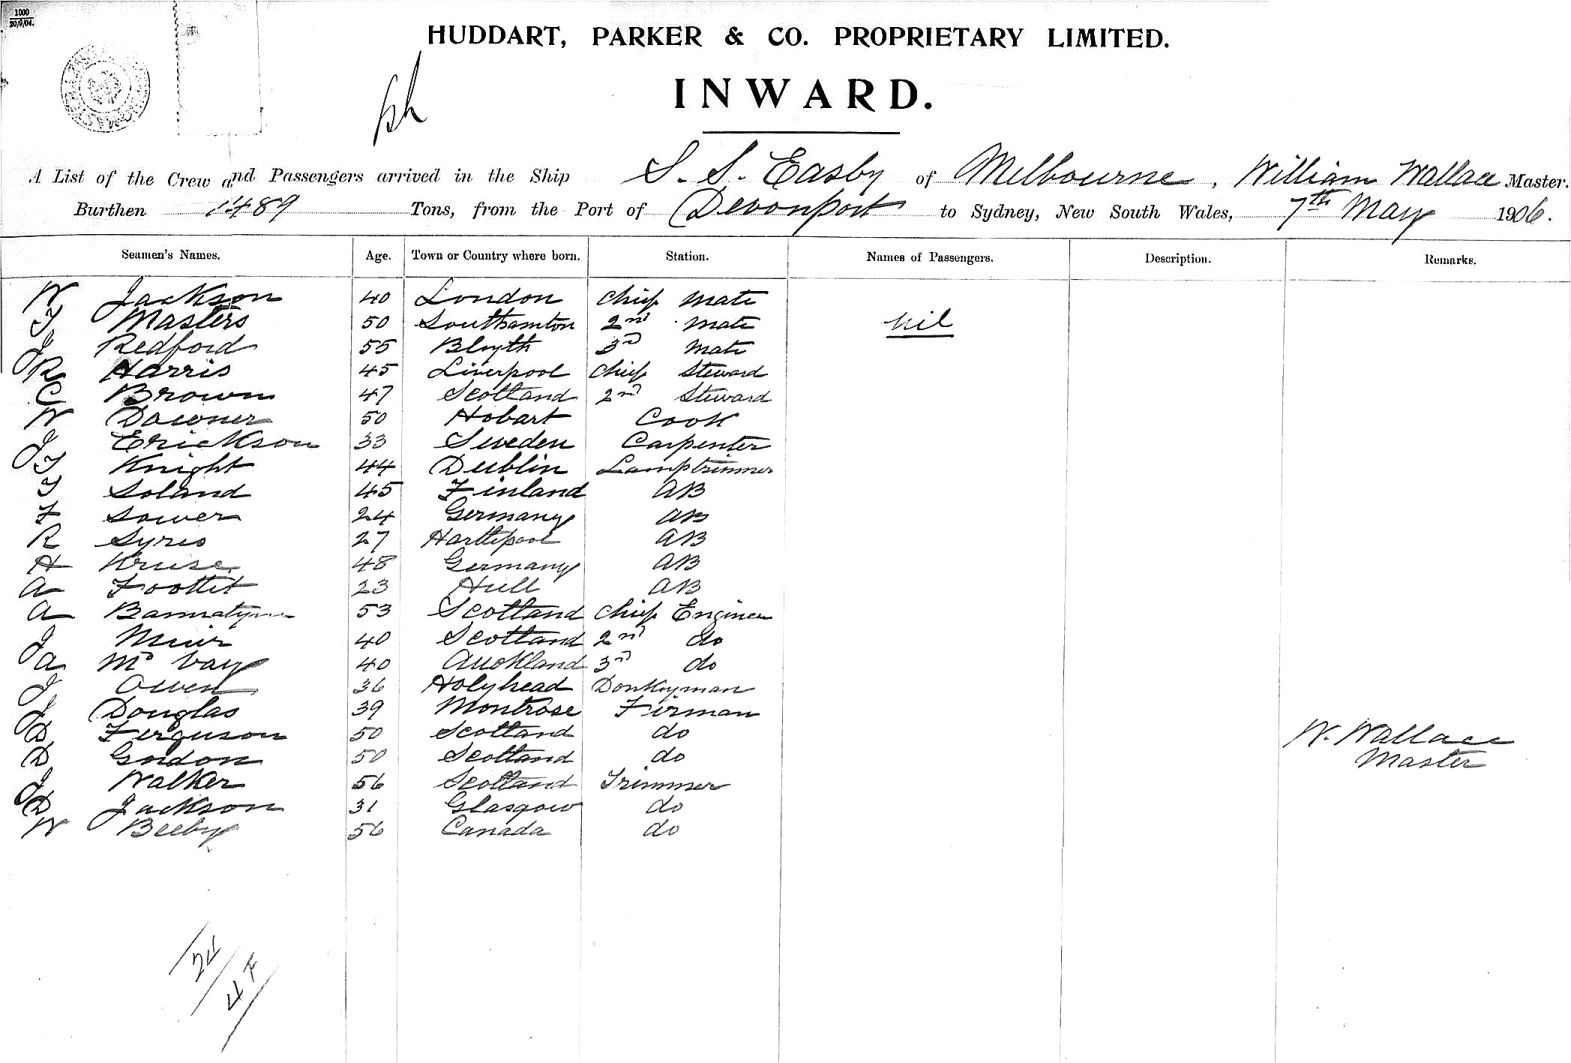 1000
20/9/04.
HUDDART, PARKER & CO. PROPRIETARY LIMITED.
INWARD.
A List of the Crew and Passengers arrived in the Ship S. S. Easby of Melbourne, William Wallace Master.
Burthen 1489 Tons, from the Port of Devonport to Sydney, New South Wales, 7th May 1906.
Seamen's Names. Age. Town or Country where born. Station. Names of Passengers. Description. Remarks.
W Jackson 40 London Chief Mate
T Masters 50 Southamton 2nd Mate nil
J Redford 55 Blyth 3rd Mate
R Harris 45 Liverpool Chief Steward
C Brown 47 Scotland 2nd Steward
W Downer 50 Hobart Cook
J Erickson 33 Sweden Carpenter
T Knight 44 Dublin Lamptrimmer
T Soland 45 Finland AB
F Sower 24 Germany AB
R Syres 27 Hartlepool AB
H Kruse 48 Germany AB
A Foottit 23 Hull AB
A Bannatyne 53 Scotland Chief Engineer
J Muir 40 Scotland 2nd do
A Mc Vay 40 Auckland 3rd do
J Owen 36 Holyhead Donkeyman
J Douglas 39 Montrose Firman
D Ferguson 50 Scotland do W. Wallace
D Gordon 50 Scotland do Master
J Walker 56 Scotland Trimmer
D Jackson 31 Glasgow do
W Beeby 56 Canada do
24
4 F